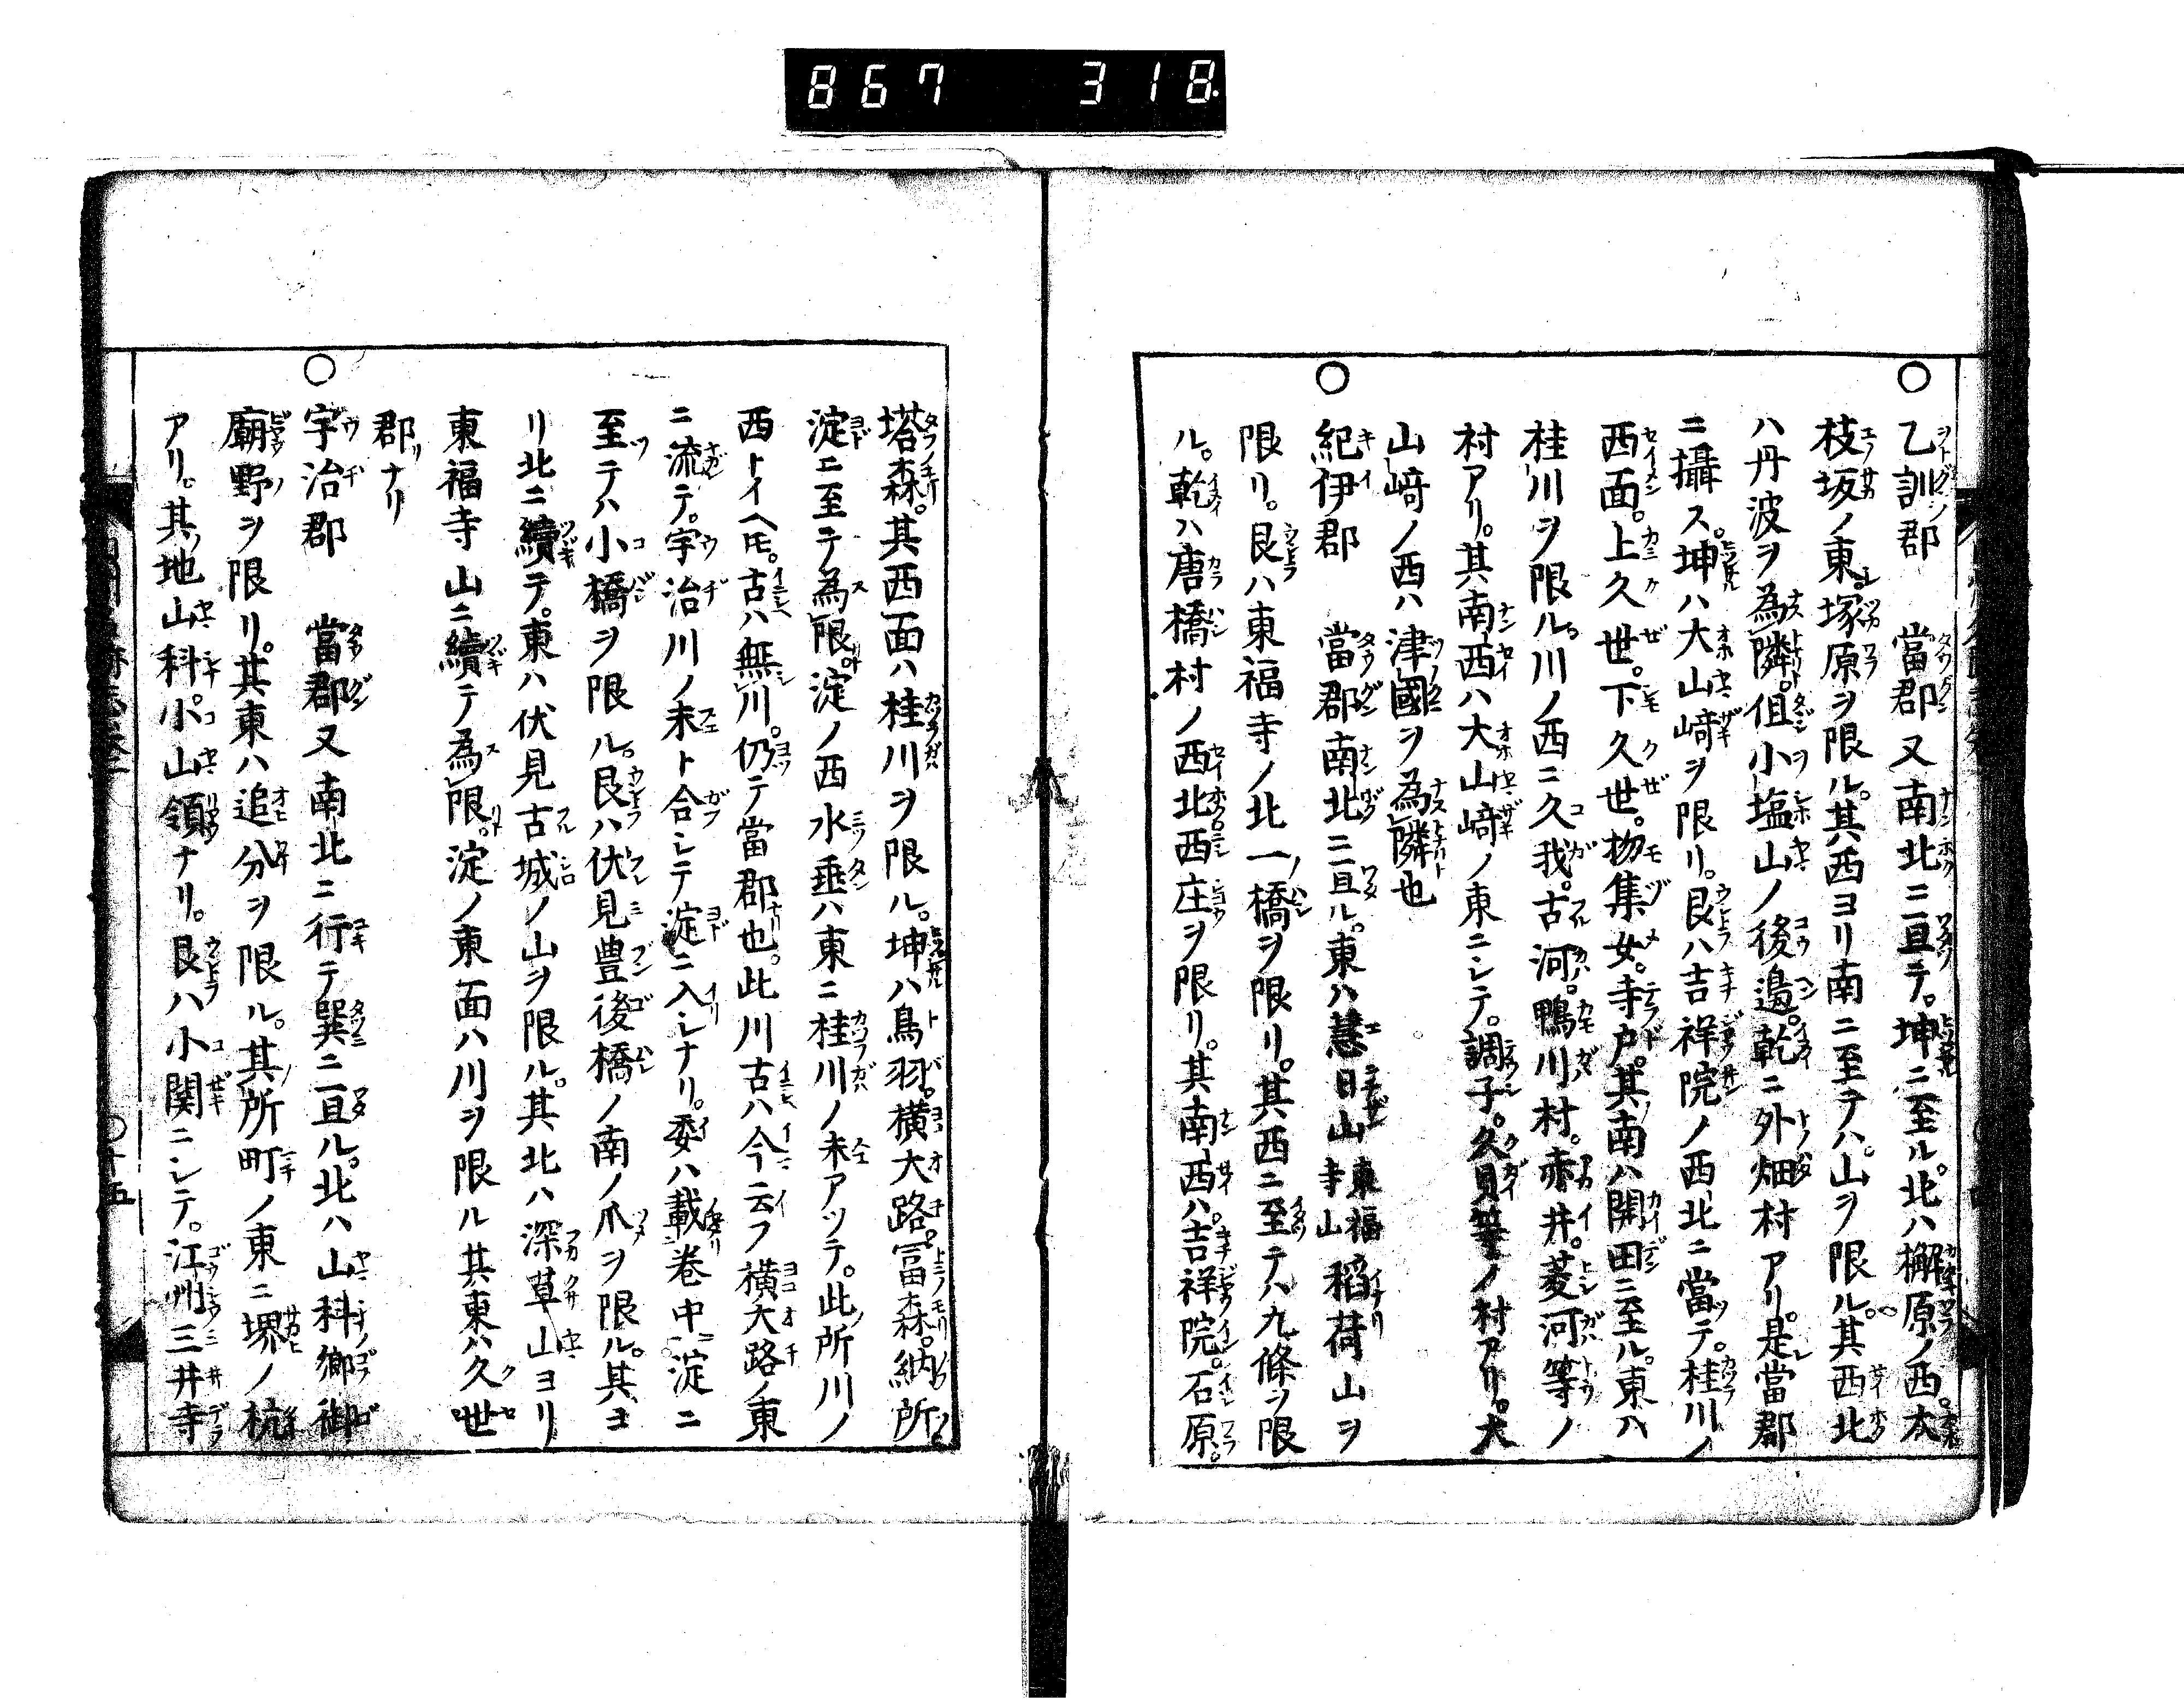 867 318.
○乙訓郡 當郡又南北ニ亘テ。坤ニ至ル。北ハ樫原ノ西。大
枝坂ノ東。塚原ヲ限ル。其西ヨリ南ニ至テハ。山ヲ限ル。其西北
ハ丹波ヲ為隣。但小塩山ノ後邉。乾ニ外畑村アリ。是當郡
ニ攝ス。坤ハ大山﨑ヲ限リ。艮ハ吉祥院ノ西北ニ當テ。桂川ノ
西面。上久世。下久世。物集女。寺戸。其南ハ開田ニ至ル。東ハ
桂川ヲ限ル。川ノ西ニ久我。古河。鴨川村。赤井。菱河等ノ
村アリ。其南西ハ大山﨑ノ東ニシテ。調子。久貝等ノ村アリ。大
山﨑ノ西ハ津國ヲ為隣也
○紀伊郡 當郡南北ニ亘ル。東ハ慧日山東福寺山稻荷山ヲ
限リ。艮ハ東福寺ノ北一ノ橋ヲ限リ。其西ニ至テハ九條ヲ限
ル。乾ハ唐橋村ノ西北西庄ヲ限リ。其南西ハ吉祥院。石原。
塔森。其西面ハ桂川ヲ限ル。坤ハ鳥羽。横大路。冨森。納所
淀ニ至テ為限。淀ノ西水垂ハ東ニ桂川ノ末アッテ。此所川ノ
西トイヘ𪜈。古ハ無川。仍テ當郡也。此川古ハ今云フ横大路ノ東
ニ流テ。宇治川ノ末ト合シテ淀ニ入シナリ。委ハ載巻中淀ニ
至テハ小橋ヲ限ル。艮ハ伏見豊後橋ノ南ノ爪ヲ限ル。其ヨ
リ北ニ續テ。東ハ伏見古城ノ山ヲ限ル。其北ハ深草山ヨリ
東福寺山ニ續テ為限。淀ノ東面ハ川ヲ限ル其東ハ久世
郡ナリ
○宇治郡 當郡又南北ニ行テ巽ニ亘ル。北ハ山科郷御
廟野ヲ限リ。其東ハ追分ヲ限ル。其所町ノ東ニ堺ノ杭
アリ。其地山科。小山領ナリ。艮ハ小関ニシテ。江州三井寺
○十五